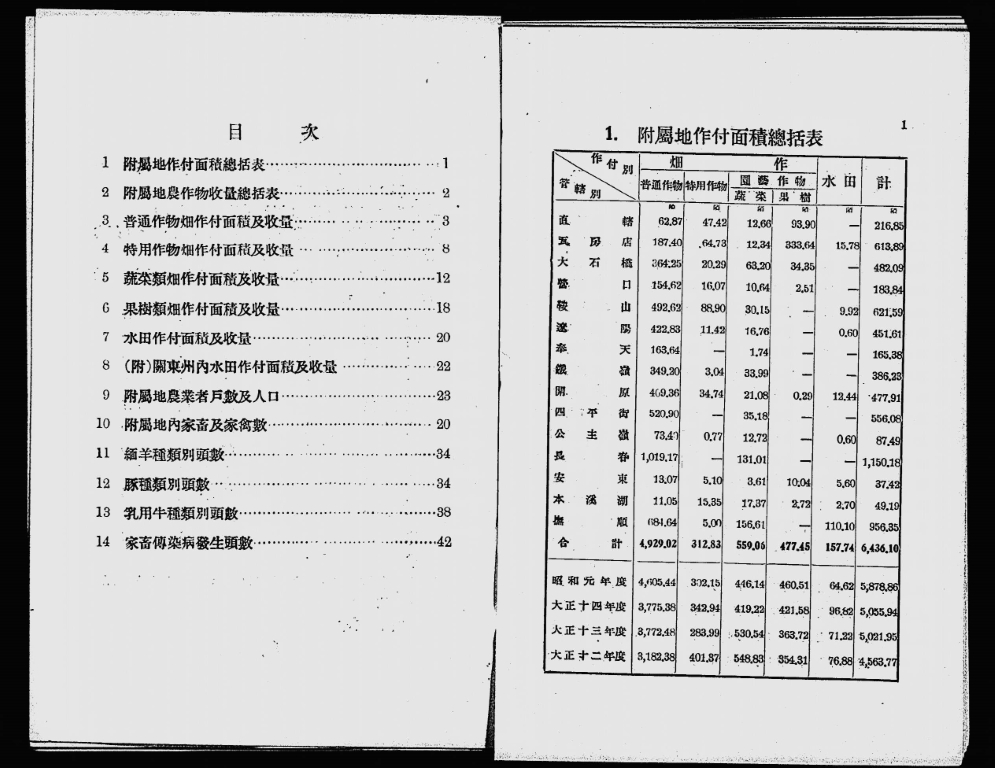 目次
1 附屬地作付面積總括表 1
2 附屬地農作物收量總括表 2
3 普通作物畑作付面積及收量 3
4 特用作物畑作付面積及收量 8
5 蔬菜類畑作付面積及收量 12
6 果樹類畑作付面積及收量 18
7 水田作付面積及收量 20
8 (附)關東州內水田作付面積及收量 22
9 附屬地農業者戶數及人口 23
10 附屬地內家畜及家禽數 20
11 緬羊種類別頭數 34
12 豚種類別頭數 34
13 乳用牛種類別頭數 38
14 家畜傳染病發生頭數 42
1
1. 附屬地作付面積總括表
作付別 畑作 水田 計
管轄別 普通作物 特用作物 園藝作物
蔬菜 果樹
直轄 62.87 47.42 12.66 93.90 — 216.85
瓦房店 187.40 64.73 12.34 333.64 15.78 613.89
大石橋 364.25 20.29 63.20 34.35 — 482.09
營口 154.62 16.07 10.64 2.51 — 183.84
鞍山 492.62 88.90 30.15 — 9.92 621.59
遼陽 422.83 11.42 16.76 — 0.60 451.61
奉天 163.64 — 1.74 — — 165.38
鐵嶺 349.20 3.04 33.99 — — 386.23
開原 409.36 34.74 21.08 0.29 12.44 477.91
四平街 520.90 — 35.18 — — 556.08
公主嶺 73.40 0.77 12.72 — 0.60 87.49
長春 1,019.17 — 131.01 — — 1,150.18
安東 13.07 5.10 3.61 10.04 5.60 37.42
本溪湖 11.05 15.35 17.37 2.72 2.70 49.19
撫順 684.64 5.00 156.61 — 110.10 956.35
合計 4,929.02 312.83 559.06 477.45 157.74 6,436.10
昭和元年度 4,605.44 302.15 446.14 460.51 64.62 5,878.86
大正十四年度 3,775.38 342.94 419.22 421.58 96.82 5,055.94
大正十三年度 3,772.48 283.99 530.54 363.72 71.22 5,021.95
大正十二年度 3,182.38 401.37 548.83 354.31 76.88 4,563.77